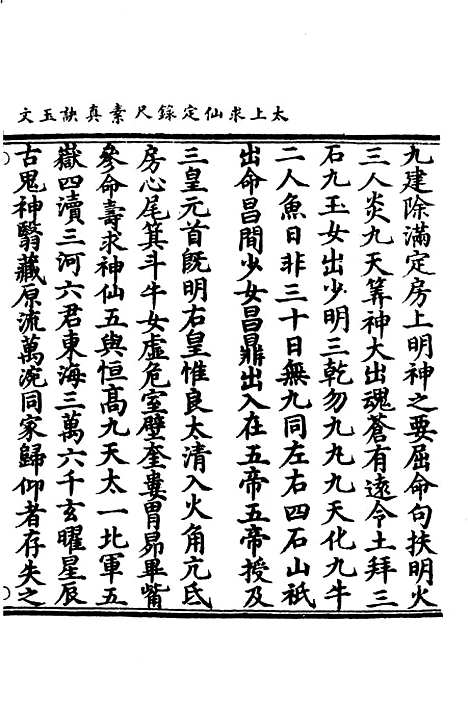 太上求仙定錄尺素真訣玉文
九建除滿定房上明神之要屈命句扶明火
三人炎九天筭神大出魂蒼有遠令土拜三
石九玉女出少明三乾勿九九九天化九牛
二人魚日非三十日無九同左右四石山祇
出命昌間少女昌鼎出入在五帝五帝授及
三皇元首既明右皇惟良太清入火角亢氐
房心尾箕斗牛女虛危室壁奎婁胃昴畢觜
參命壽求神仙五與恒高九天太一北軍五
嶽四瀆三河六君東海三萬六千玄曜星辰
古鬼神翳藏原流萬涴同家歸仰者存失之